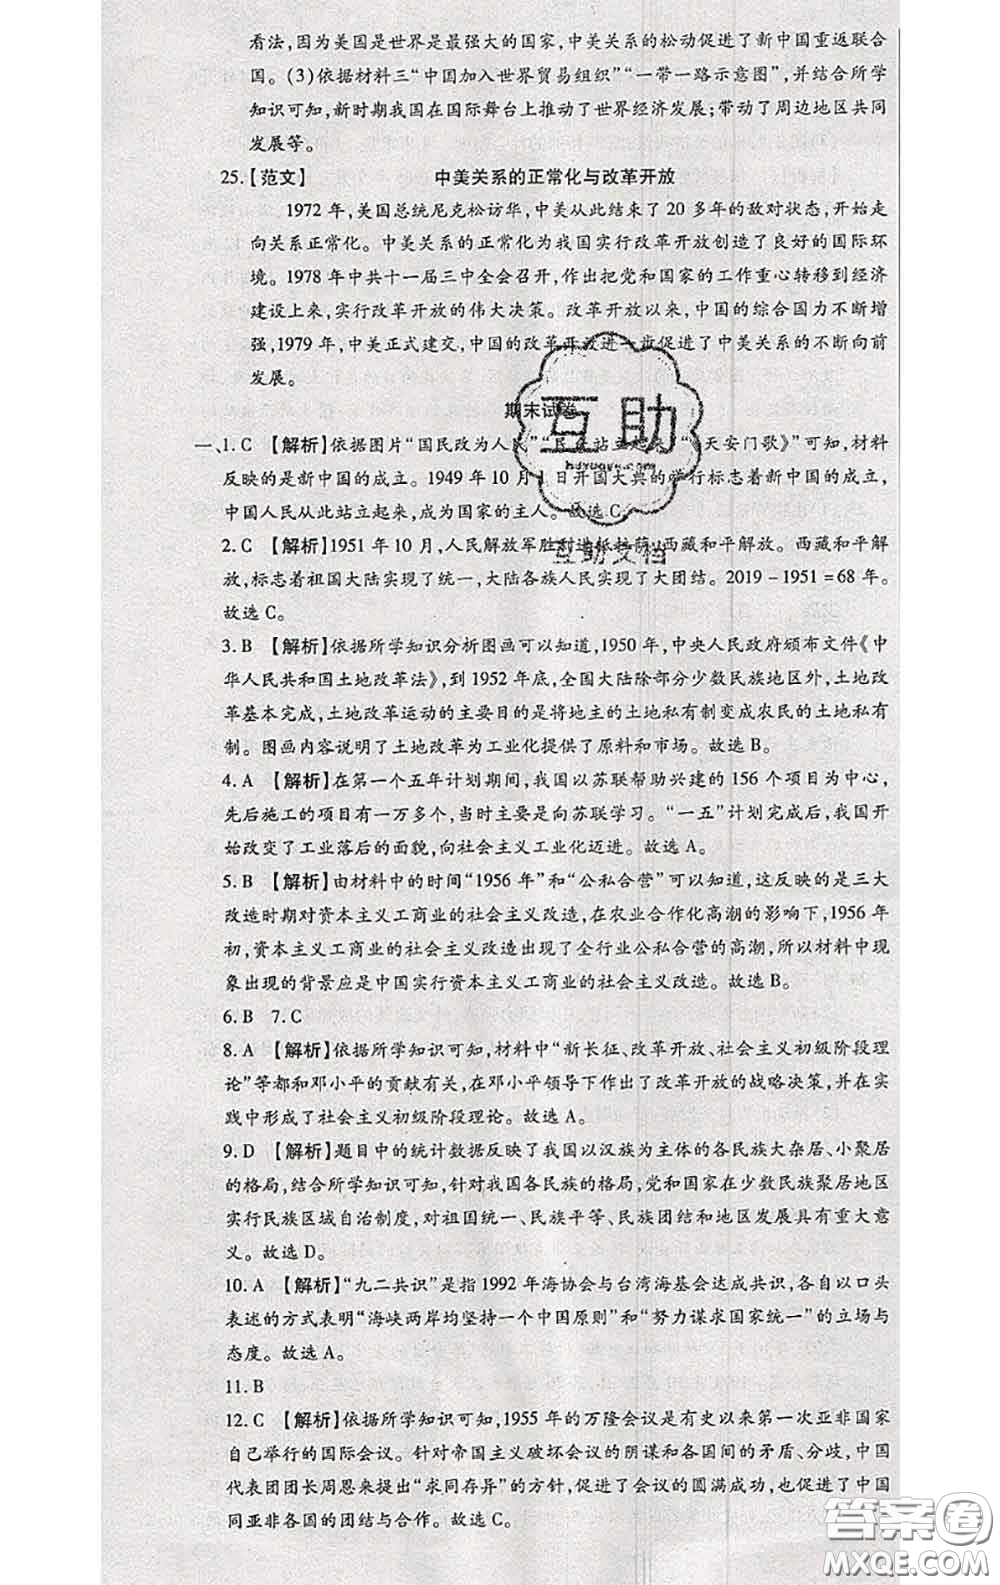 看法,因为美国是世界是最强大的国家,中美关系的松动促进了新中国重返联合
国。(3)依据材料三“中国加入世界贸易组织”“一带一路示意图”,并结合所学
知识可知,新时期我国在国际舞台上推动了世界经济发展;带动了周边地区共同
发展等。
25.【范文】 中美关系的正常化与改革开放
1972年,美国总统尼克松访华,中美从此结束了20多年的敌对状态,开始走
向关系正常化。中美关系的正常化为我国实行改革开放创造了良好的国际环
境。1978年中共十一届三中全会召开,作出把党和国家的工作重心转移到经济
建设上来,实行改革开放的伟大决策。改革开放以来,中国的综合国力不断增
强,1979年,中美正式建交,中国的改革开放进一步促进了中美关系的不断向前
发展。
期末试卷
一、1.C 【解析】依据图片“国民改为人民”“ 站立起来”“ 天安门歌》”可知,材料
反映的是新中国的成立。1949年10月1日开国大典的举行标志着新中国的成立,
中国人民从此站立起来,成为国家的主人。故选C。
2.C 【解析】1951年10月,人民解放军胜利进抵拉萨,西藏和平解放。西藏和平解
放,标志着祖国大陆实现了统一,大陆各族人民实现了大团结。2019-1951=68年。
故选C。
3.B 【解析】依据所学知识分析图画可以知道,1950年,中央人民政府颁布文件《中
华人民共和国土地改革法》,到1952年底,全国大陆除部分少数民族地区外,土地改
革基本完成,土地改革运动的主要目的是将地主的土地私有制变成农民的土地私有
制。图画内容说明了土地改革为工业化提供了原料和市场。故选B。
4.A 【解析】在第一个五年计划期间,我国以苏联帮助兴建的156个项目为中心,
先后施工的项目有一万多个,当时主要是向苏联学习。“一五”计划完成后,我国开
始改变了工业落后的面貌,向社会主义工业化迈进。故选A。
5.B 【解析】由材料中的时间“1956年”和“公私合营”可以知道,这反映的是三大
改造时期对资本主义工商业的社会主义改造,在农业合作化高潮的影响下,1956年
初,资本主义工商业的社会主义改造出现了全行业公私合营的高潮,所以材料中现
象出现的背景应是中国实行资本主义工商业的社会主义改造。故选B。
6.B 7.C
8.A 【解析】依据所学知识可知,材料中“新长征、改革开放、社会主义初级阶段理
论”等都和邓小平的贡献有关,在邓小平领导下作出了改革开放的战略决策,并在实
践中形成了社会主义初级阶段理论。故选A。
9.D 【解析】题目中的统计数据反映了我国以汉族为主体的各民族大杂居、小聚居
的格局,结合所学知识可知,针对我国各民族的格局,党和国家在少数民族聚居地区
实行民族区域自治制度,对祖国统一、民族平等、民族团结和地区发展具有重大意
义。故选D。
10.A 【解析】“九二共识”是指1992年海协会与台湾海基会达成共识,各自以口头
表述的方式表明“海峡两岸均坚持一个中国原则”和“努力谋求国家统一”的立场与
态度。故选A。
11.B
12.C 【解析】依据所学知识可知,1955年的万隆会议是有史以来第一次亚非国家
自己举行的国际会议。针对帝国主义破坏会议的阴谋和各国间的矛盾、分歧,中国
代表团团长周恩来提出“求同存异”的方针,促进了会议的圆满成功,也促进了中国
同亚非各国的团结与合作。故选C。
互助
互助文档
答案圈
MXQE.COM